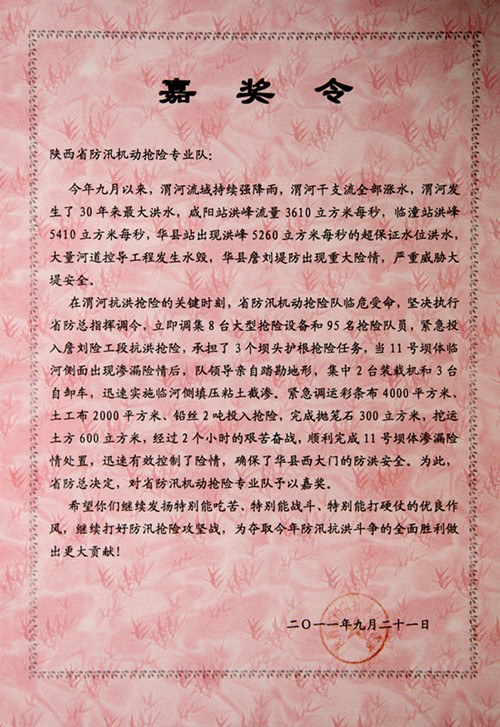 嘉奖令
陕西省防汛机动抢险专业队：
今年九月以来，渭河流域持续强降雨，渭河干支流全部涨水，渭河发
生了30年来最大洪水，咸阳站洪峰流量3610立方米每秒，临潼站洪峰
5410立方米每秒，华县站出现洪峰5260立方米每秒的超保证水位洪水，
大量河道控导工程发生水毁，华县詹刘堤防出现重大险情，严重威胁大
堤安全。
在渭河抗洪抢险的关键时刻，省防汛机动抢险队临危受命，坚决执行
省防总指挥调令，立即调集8台大型抢险设备和95名抢险队员，紧急投
入詹刘险工段抗洪抢险，承担了3个坝头护根抢险任务，当11号坝体临
河侧面出现渗漏险情后，队领导亲自踏勘地形，集中2台装载机和3台
自卸车，迅速实施临河侧填压粘土截渗。紧急调运彩条布4000平方米、
土工布2000平方米、铅丝2吨投入抢险，完成抛笼石300立方米，挖运
土方600立方米，经过2个小时的艰苦奋战，顺利完成11号坝体渗漏险
情处置，迅速有效控制了险情，确保了华县西大门的防洪安全。为此，
省防总决定，对省防汛机动抢险专业队予以嘉奖。
希望你们继续发扬特别能吃苦、特别能战斗、特别能打硬仗的优良作
风，继续打好防汛抢险攻坚战，为夺取今年防汛抗洪斗争的全面胜利做
出更大贡献！
二〇一一年九月二十一日